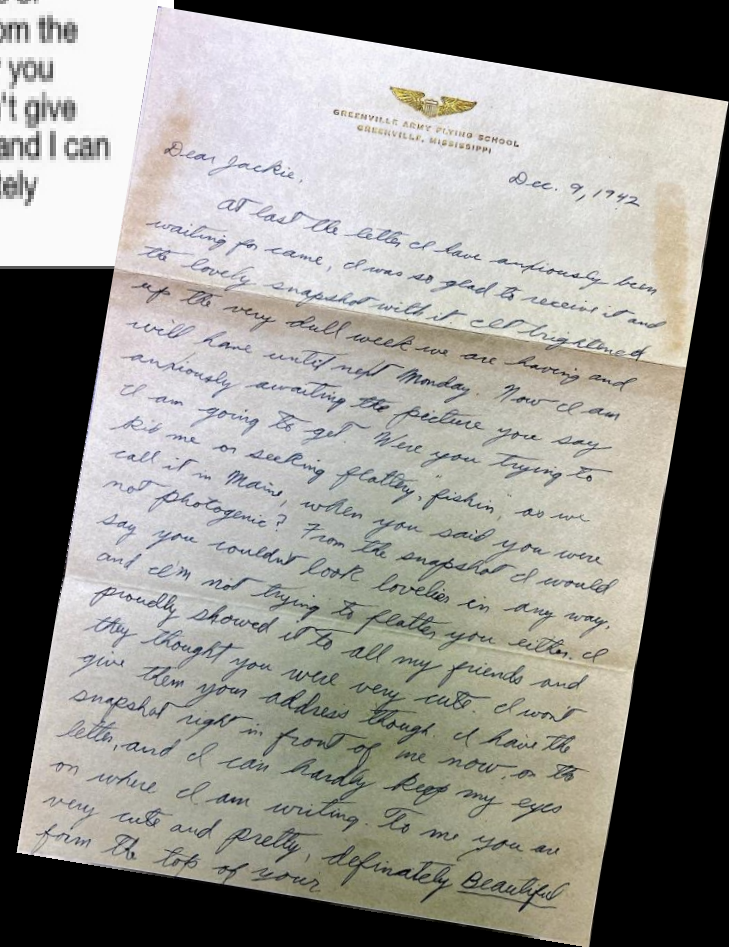 om the
you
't give
and I can
tely
GREENVILLE ARMY FLYING SCHOOL
GREENVILLE, MISSISSIPPI
Dec. 9, 1942
Dear Jackie,
At last the letter I have anxiously been
waiting for came, I was so glad to receive it and
the lovely snapshot with it. It brightened
up the very dull week we are having and
will have until next Monday. Now I am
anxiously awaiting the picture you say
I am going to get. Were you trying to
kid me or seeking flattery, "fishin," as we
call it in Maine, when you said you were
not photogenic? From the snapshot I would
say you couldn't look lovelier in any way,
and I'm not trying to flatter you either. I
proudly showed it to all my friends and
they thought you were very cute. I won't
give them your address though. I have the
snapshot right in front of me now, on the
letter, and I can hardly keep my eyes
on where I am writing. To me you are
very cute and pretty, definately Beautiful
form the top of your